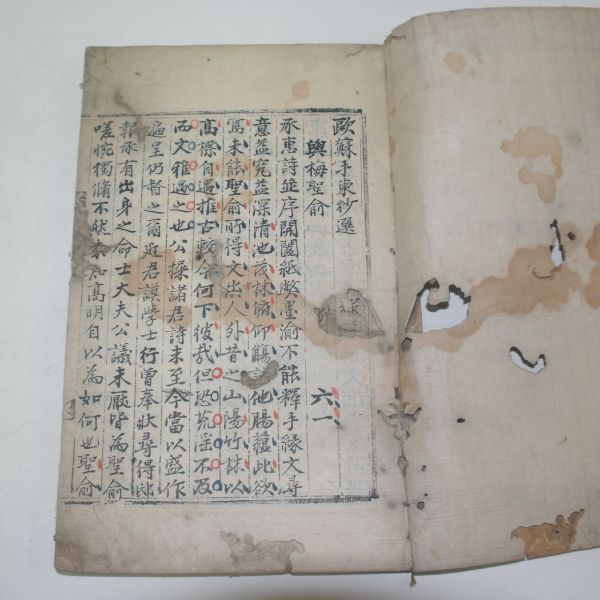 歐蘇手柬抄選
與梅聖俞 六一
承惠詩並序開闔紙弊墨渝不能釋手緣文尋
意益究益深清池茂林俯仰觴詠他腸蘊此欲
寫未能聖俞所得文出人外昔之山陽竹林以
高標自遇推古較今何下彼哉但恐荒淫不及
而文雅過之也公操諸君詩未至今當以盛作
遍呈仍督之爾近君謨學士行曾奉狀尋得邸
報承有出身之命士大夫公議未厭皆為聖俞
嗟惋獨備不然未知高明自以為如何也聖俞